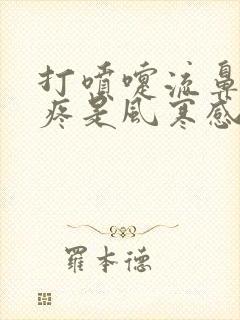 打噴嚏流鼻
疼是風寒感
羅本德